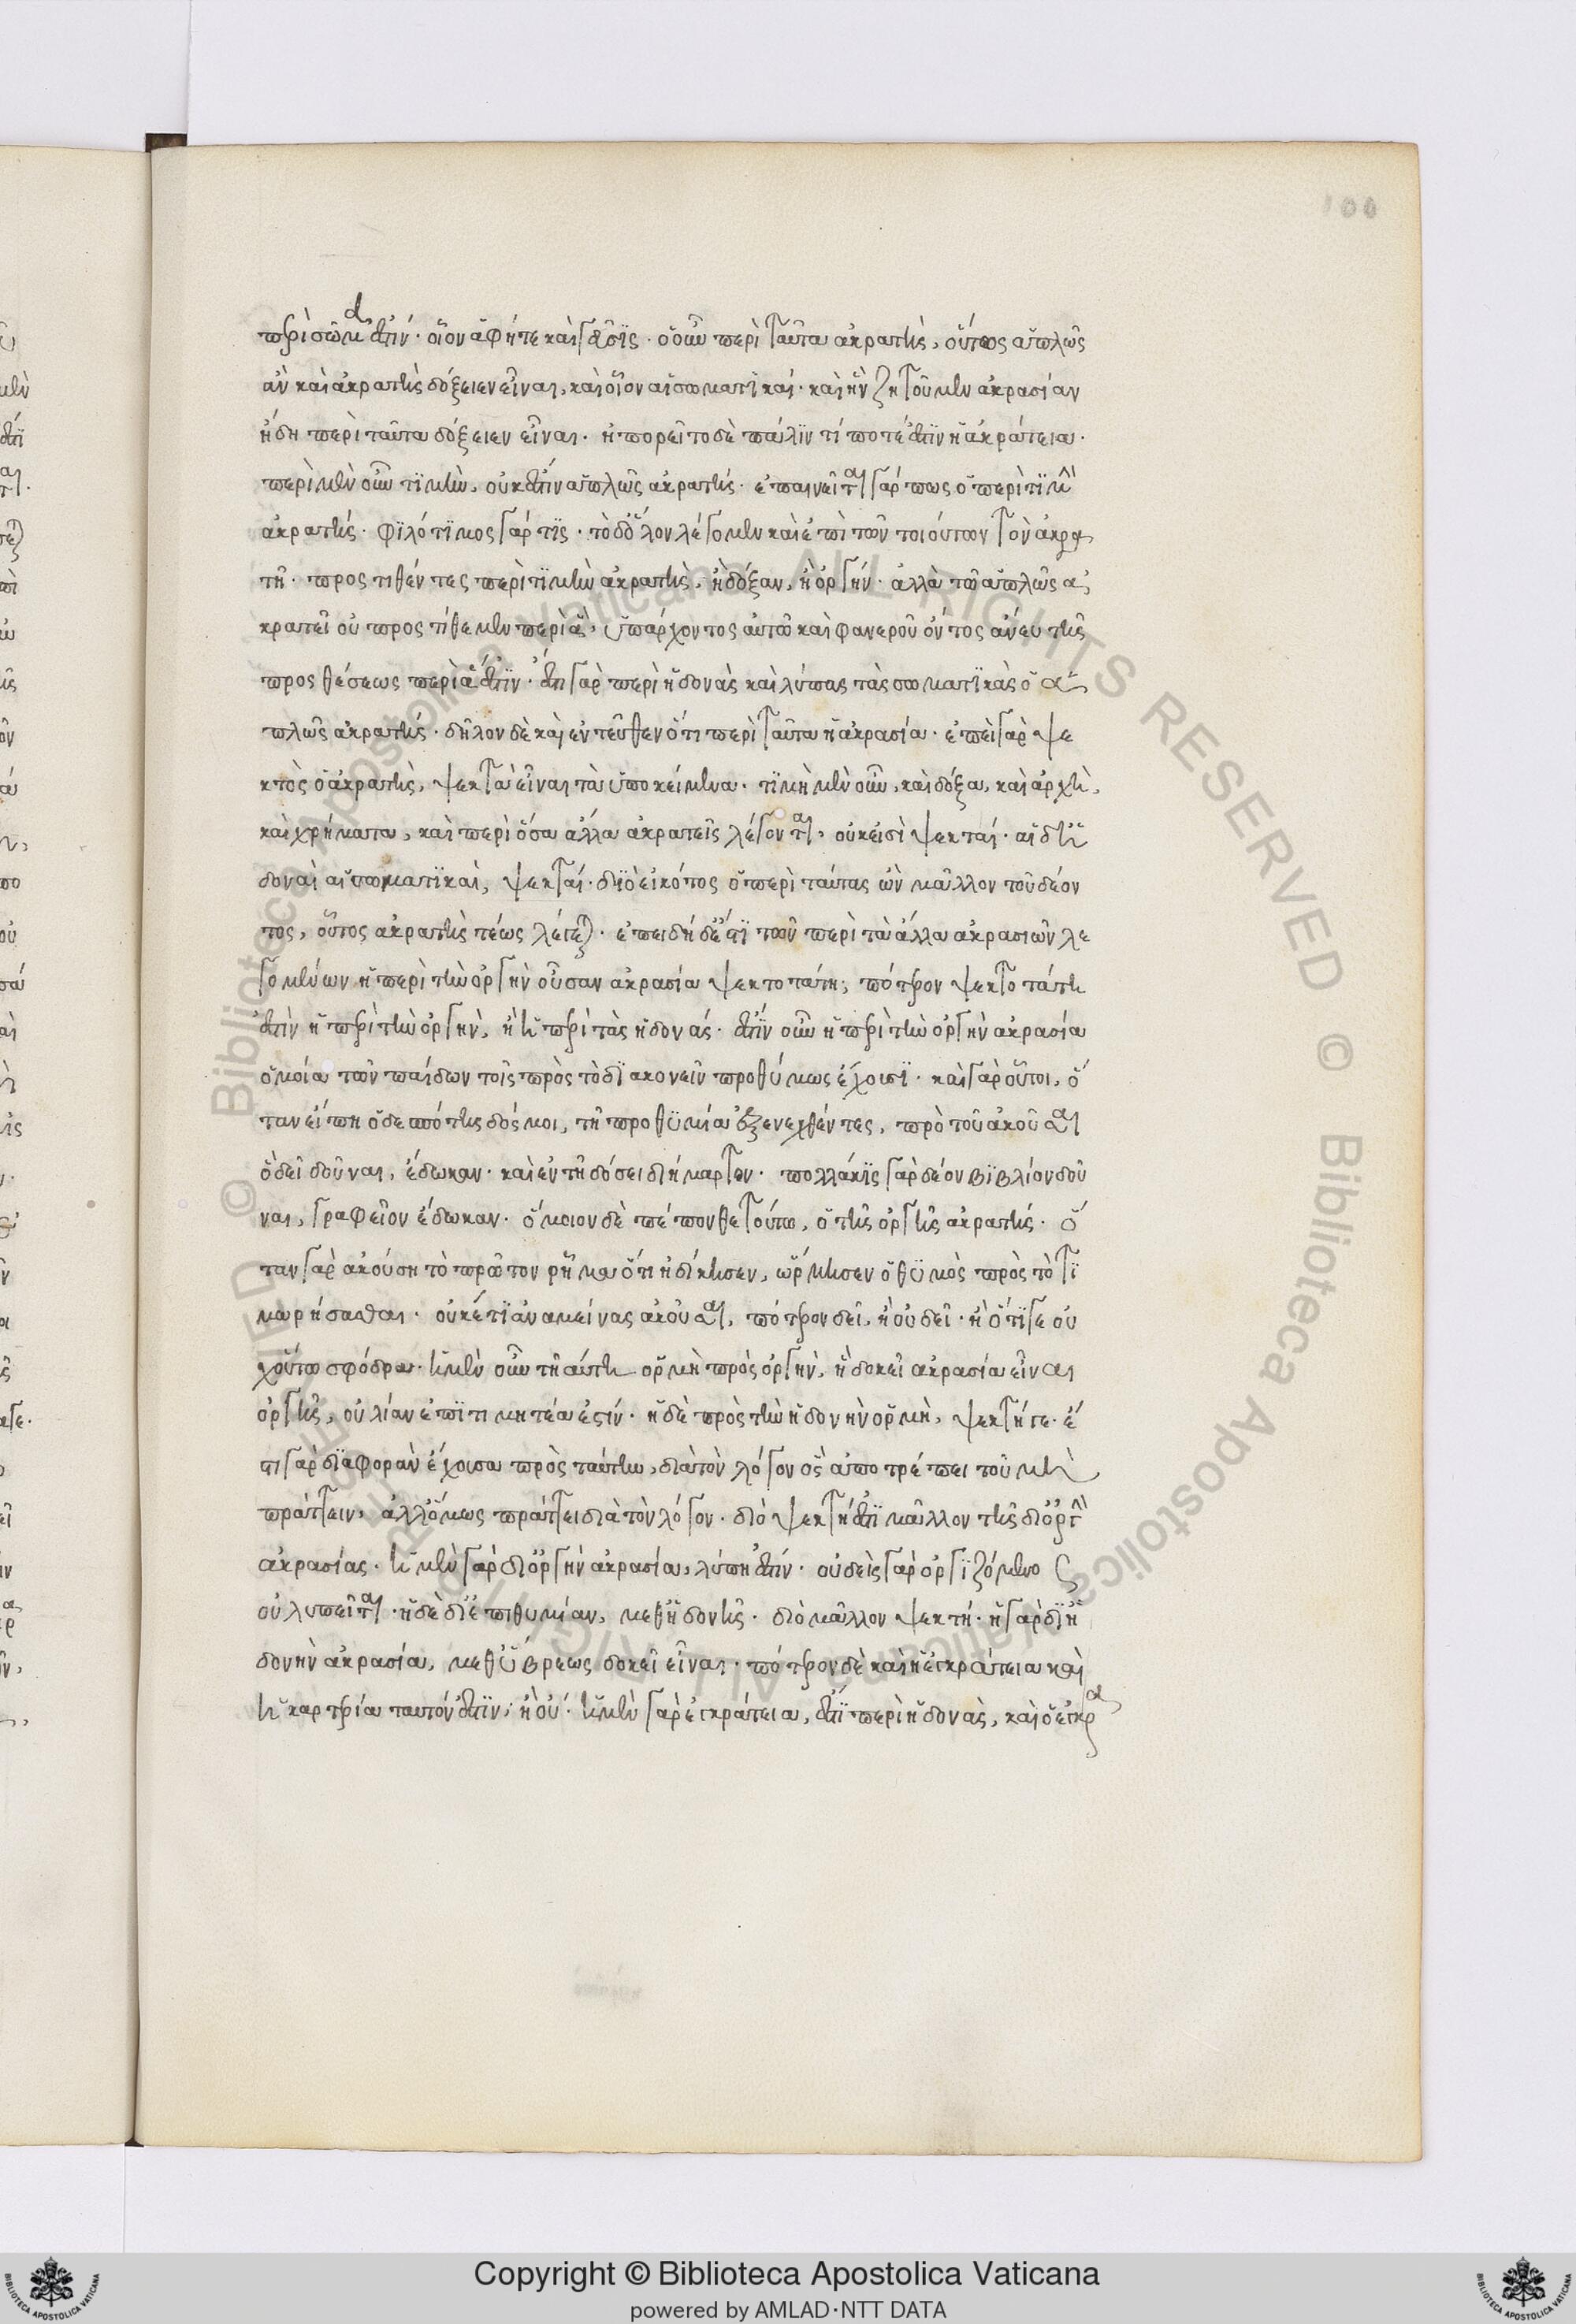 100
περὶ σῶμά ἐστιν· οἷον ἁφή τε καὶ γεῦσις· ὁ οὖν περὶ ταῦτα ἀκρατὴς, οὕτως ἁπλῶς
ἂν καὶ ἀκρατὴς δόξειεν εἶναι, καὶ οἷον αἱ σωματικαί· καὶ ἣν ζητοῦμεν ἀκρασίαν
ἤδη περὶ ταῦτα δόξειεν εἶναι· ἠπορεῖτο δὲ πάλιν τί ποτέ ἐστιν ἡ ἀκράτεια·
περὶ μὲν οὖν τιμὴν, οὐκ ἔστιν ἁπλῶς ἀκρατής· ἐπαινεῖται γάρ πως ὁ περὶ τιμὴν
ἀκρατής· φιλότιμος γάρ τις· τὸ δ' ὅλον λέγομεν καὶ ἐπὶ τῶν τοιούτων τὸν ἀκρα
τῆ· προστιθέντες περὶ τιμὴν ἀκρατὴς, ἢ δόξαν, ἢ ὀργήν· ἀλλὰ τῶ ἁπλῶς ἀ
κρατεῖ οὐ προστίθεμεν περὶ ἃ, ὑπάρχοντος αὐτῶ καὶ φανεροῦ ὄντος ἄνευ τῆς
προσθέσεως περὶ ἅ ἐστιν· ἔστι γὰρ περὶ ἡδονὰς καὶ λύπας τὰς σωματικὰς ὁ ἁ
πλῶς ἀκρατής· δῆλον δὲ καὶ ἐντεῦθεν ὅτι περὶ ταῦτα ἡ ἀκρασία· ἐπεὶ γὰρ ψε
κτὸς ὁ ἀκρατὴς, ψεκτὰ εἶναι τὰ ὑποκείμενα· τιμὴ μὲν οὖν, καὶ δόξα, καὶ ἀρχὴ,
καὶ χρήματα, καὶ περὶ ὅσα ἄλλα ἀκρατεῖς λέγονται, οὐκ εἰσὶ ψεκταί· αἱ δ' ἡ
δοναὶ αἱ σωματικαὶ, ψεκταί· διὸ εἰκότος ὁ περὶ ταύτας ὢν μᾶλλον τοῦ δέον
τος, οὗτος ἀκρατὴς τέως λέγεται· ἐπειδὴ δέ ἐστι τῶν περὶ τὰ ἄλλα ἀκρασιῶν λε
γομένων ἡ περὶ τὴν ὀργὴν οὖσαν ἀκρασία ψεκτοτάτη, πότερον ψεκτοτάτη
ἐστὶν ἡ περὶ τὴν ὀργὴν, ἢ ἡ περὶ τὰς ἡδονάς· ἔστιν οὖν ἡ περὶ τὴν ὀργὴν ἀκρασία
ὁμοία τῶν παίδων τοῖς πρὸς τὸ διακονεῖν προθύμως ἔχουσι· καὶ γὰρ οὗτοι, ὅ
ταν εἴπη ὁ δεσπότης δός μοι, τῆ προθυμία ἐξενεχθέντες, πρὸ τοῦ ἀκοῦσαι
ὃ δεῖ δοῦναι, ἔδωκαν· καὶ ἐν τῆ δόσει διήμαρτον· πολλάκις γὰρ δέον βιβλίον δοῦ
ναι, γραφεῖον ἔδωκαν· ὅμοιον δὲ πέπονθε τούτω, ὁ τῆς ὀργῆς ἀκρατής· ὅ
ταν γὰρ ἀκούση τὸ πρῶτον ῥῆμα ὅτι ἠδίκησεν, ὥρμησεν ὁ θυμὸς πρὸς τὸ τι
μωρήσασθαι· οὐκέτι ἀναμείνας ἀκοῦσαι, πότερον δεῖ, ἢ οὐ δεῖ· ἢ ὅτι γε οὐ
χ οὕτω σφόδρα· ἡ μὲν οὖν τῆ αύτη ὁρμὴ πρὸς ὀργὴν, ἣ δοκεῖ ἀκρασία εἶναι
ὀργῆς, οὐ λίαν ἐπιτιμητέα ἐστίν· ἡ δὲ πρὸς τὴν ἡδονὴν ὁρμὴ, ψεκτή γε· ἔ
τι γὰρ διαφορὰν ἔχουσα πρὸς ταύτην, διὰ τὸν λόγον ὃς ἀποτρέπει τοῦ μὴ
πράττειν, ἀλλ' ὅμως πράττει διὰ τὸν λόγον· διὸ ψεκτή ἐστι μᾶλλον τῆς δι' ὀργὴν
ἀκρασίας· ἡ μὲν γὰρ δι' ὀργὴν ἀκρασία, λύπη ἐστίν· οὐδεὶς γὰρ ὀργιζόμενος
οὐ λυπεῖται· ἡ δὲ δι' ἐπιθυμίαν, μεθ' ἡδονῆς· διὸ μᾶλλον ψεκτή· ἡ γὰρ δι' ἡ
δονὴν ἀκρασία, μεθ' ὕβρεως δοκεῖ εἶναι· πότερον δὲ καὶ ἡ ἐγκράτεια καὶ
ἡ καρτερία ταυτόν ἐστιν, ἢ οὔ· ἡ μὲν γὰρ ἐγκράτεια, ἐστι περὶ ἡδονὰς, καὶ ὁ ἐγκρα
© Biblioteca Apostolica Vaticana ALL RIGHTS RESERVED
Copyright © Biblioteca Apostolica Vaticana
powered by AMLAD·NTT DATA